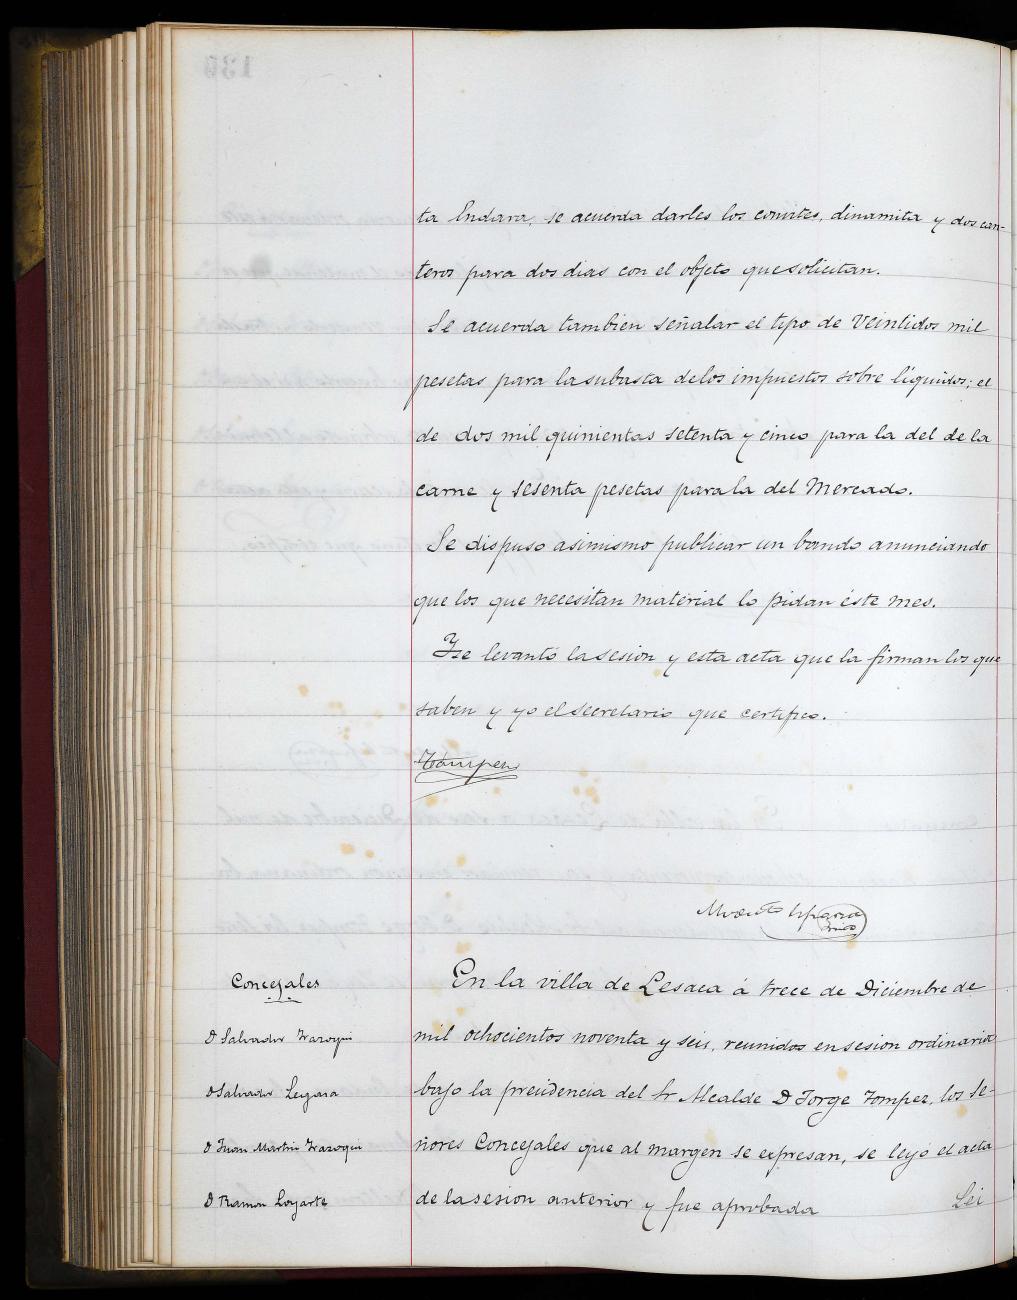 ta Endara, se acuerda darles los convites, dinamita y dos can-
teros para dos dias con el objeto que solicitan.
Se acuerda tambien señalar el tipo de Veintidos mil
pesetas para la subasta de los impuestos sobre líquidos; el
de dos mil quinientas setenta y cinco para la del de la
carne y sesenta pesetas para la del Mercado.
Se dispuso asimismo publicar un bando anunciando
que los que necesitan material lo pidan éste mes.
Y se levantó la sesion y esta acta que la firman los que
saben y yo el secretario que certifico.
Concejales
D Salvador
D Salvador
D Juan Martin
D Ramon Loyarte
En la villa de Lesaca á trece de Diciembre de
mil ochocientos noventa y seis, reunidos en sesion ordinaria
bajo la presidencia del Sr Alcalde D Jorge Tompes, los Se-
ñores Concejales que al margen se expresan, se leyó el acta
de la sesion anterior y fue aprobada Lei